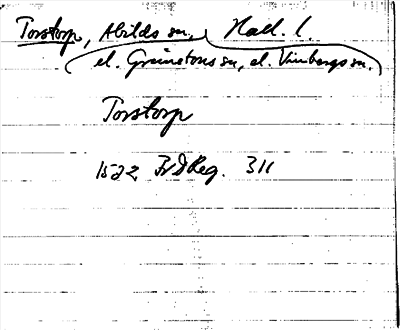 Torstorp, Abilds sn, Hall. l.
el. Grimetons sn, el. Vinbergs sn.
Torstorp
1522 Fr I Reg. 311